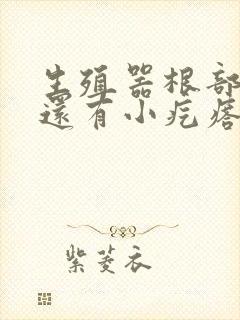 生殖器根部
還有小疙瘩
紫菱衣